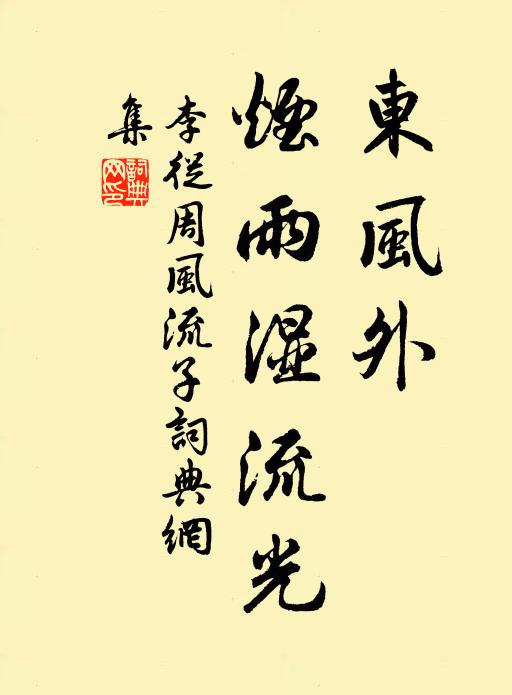 東風外
煙雨湿流光
李從周風流子詞典網
集
詞典
网印